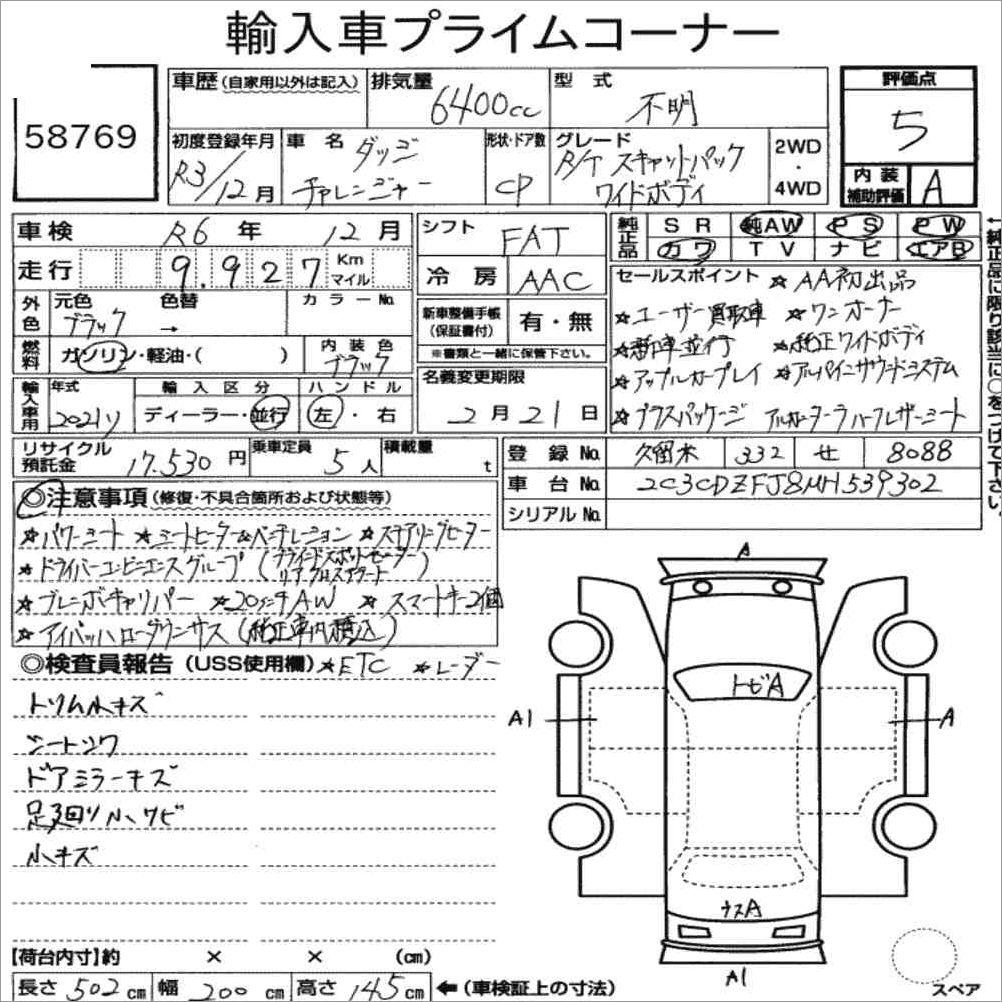 輸入車プライムコーナー
58769
車歴(自家用以外は記入)
排気量 6400cc
型式 不明
評価点 5
初度登録年月 R3/12月
車名 ダッジ チャレンジャー
形状・ドア数 CP
グレード R/T スキャットパック ワイドボディ
2WD・4WD
内装補助評価 A
車検 R6年 12月
走行 9.927 Km マイル
シフト FAT
冷房 AAC
純正品 SR 純AW PS PW
カワ TV ナビ エアB
←純正品に限り該当に○をつけて下さい。
外色 元色 ブラック 色替 → カラーNo.
燃料 ガソリン・軽油・( )
内装色 ブラック
新車整備手帳(保証書付) 有・無
※書類と一緒に保管下さい。
セールスポイント ☆AA初出品
☆ユーザー買取車 ☆ワンオーナー
☆新車並行 ☆純正ワイドボディ
☆アップルカープレイ ☆アルパインサウンドシステム
☆プラスパッケージ アルカンターラハーフレザーシート
輸入車用 年式 2021ソ
輸入区分 ディーラー・並行
ハンドル 左・右
名義変更期限 2月21日
リサイクル預託金 17.530円
乗車定員 5人
積載量 t
登録No. 久留米 332 せ 8088
車台No. 2C3CDZFJ8MH539302
シリアルNo.
◎注意事項(修復・不具合箇所および状態等)
☆パワーシート ☆シートヒーター&ベンチレーション ☆ステアリングヒーター
☆ドライバーコンビニエンスグループ(ブラインドスポットセンサー リアクロスアラート)
☆ブレンボキャリパー ☆20インチAW ☆スマートキー2個
☆アイバッハローダウンサス(純正車内積込)
◎検査員報告(USS使用欄) ☆ETC ☆レーダー
トリム小キズ
シートシワ
ドアミラーキズ
足廻り小サビ
小キズ
A
トビA
A1
A
ウスA
A1
スペア
【荷台内寸】約 × × (cm)
長さ 502cm 幅 200cm 高さ 145cm ←(車検証上の寸法)